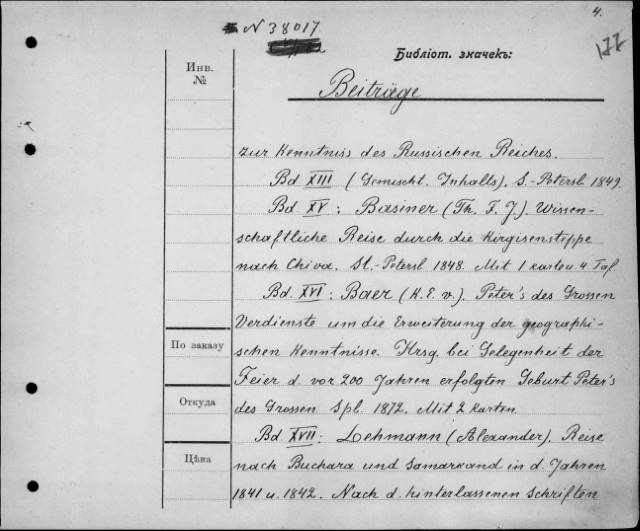 4.
N 38017
177
Библіот. значекъ:
Инв.
№
Beiträge
zur Kenntniss des Russischen Reiches.
Bd XIII (Gemischt. Inhalts). S.-Petersb. 1849.
Bd XV: Basiner (Th. F. J.). Wissen-
schaftliche Reise durch die Kirgisensteppe
nach Chiva. St.-Petersb. 1848. Mit 1 Karte u. 4 Taf.
Bd. XVI: Baer (K. E. v.). Peter's des Grossen
Verdienste um die Erweiterung der geographi-
По заказу
schen Kenntnisse. Hrsg. bei Gelegenheit der
Feier d. vor 200 Jahren erfolgten Geburt Peter's
Откуда
des Grossen. Spb. 1872. Mit 2 Karten.
Bd XVII: Lehmann (Alexander). Reise
Цѣна
nach Buchara und Samarkand in d. Jahren
1841 u. 1842. Nach d. hinterlassenen Schriften